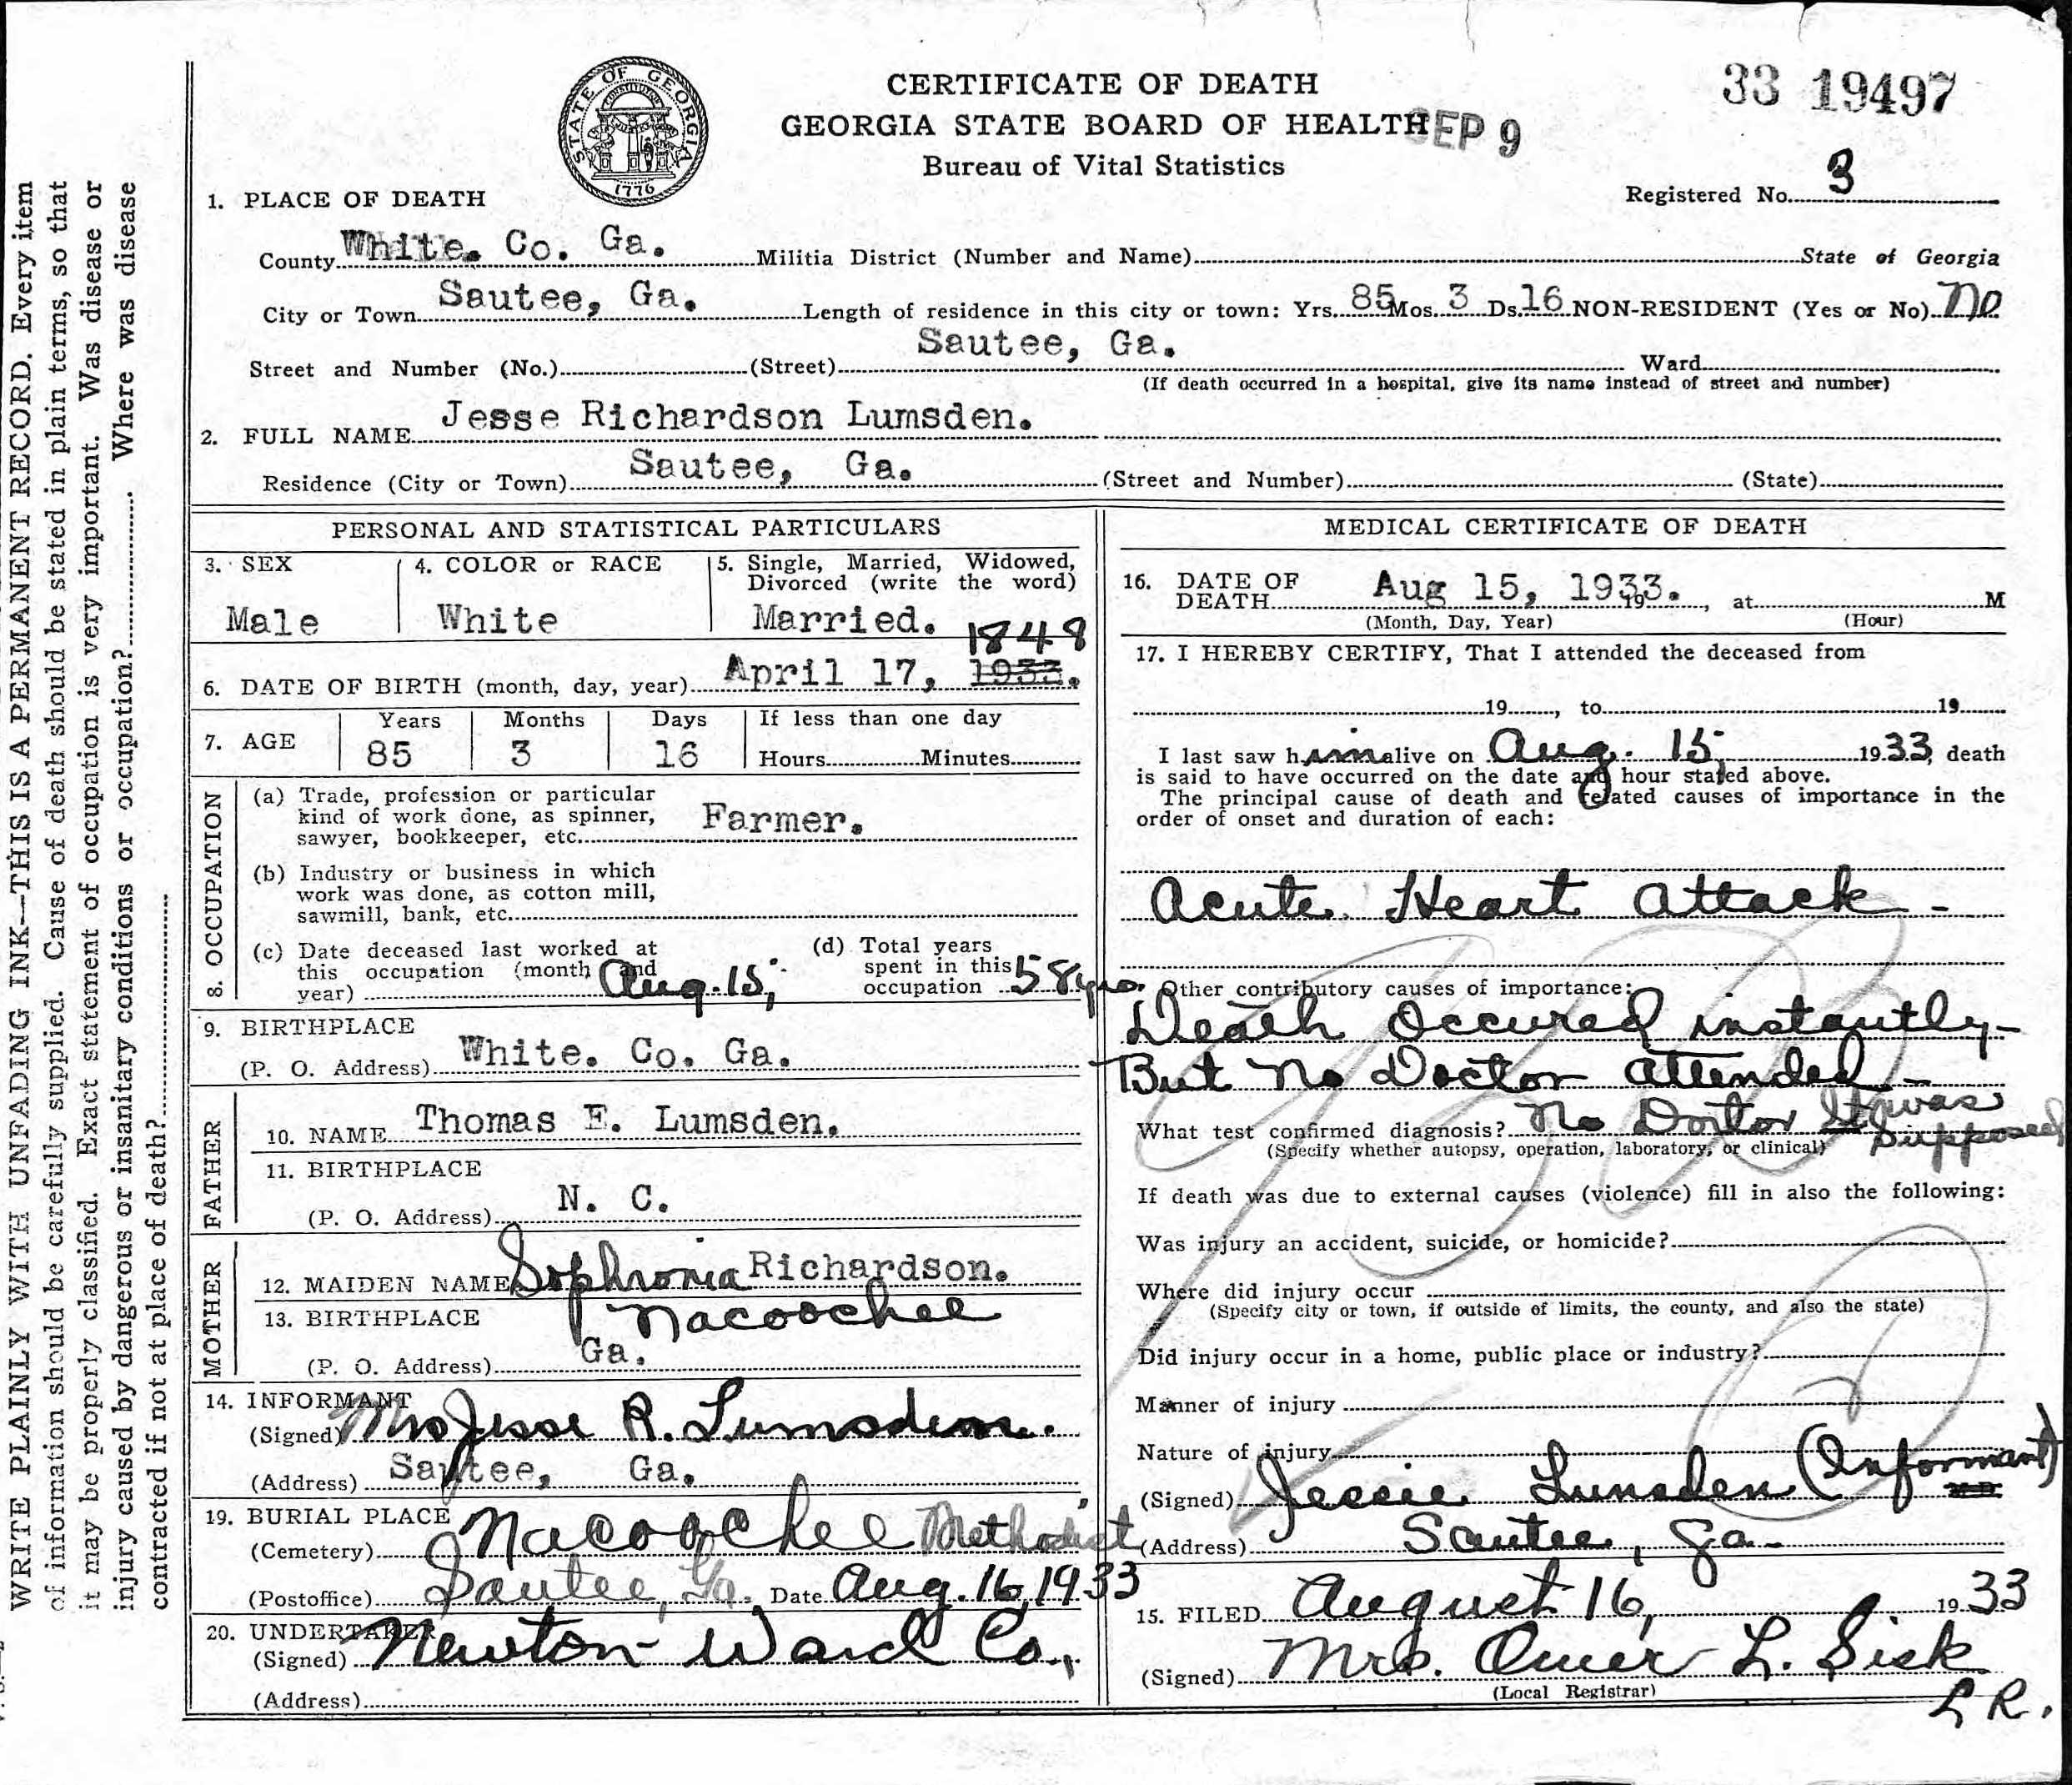 33 19497
CERTIFICATE OF DEATH
GEORGIA STATE BOARD OF HEALTH
SEP 9
Bureau of Vital Statistics
STATE OF GEORGIA
CONSTITUTION
1776
Registered No. 3
1. PLACE OF DEATH
County White. Co. Ga. Militia District (Number and Name) State of Georgia
City or Town Sautee, Ga. Length of residence in this city or town: Yrs. 85 Mos. 3 Ds. 16 NON-RESIDENT (Yes or No) No
Street and Number (No.) (Street) Sautee, Ga. Ward
(If death occurred in a hospital, give its name instead of street and number)
2. FULL NAME Jesse Richardson Lumsden.
Residence (City or Town) Sautee, Ga. (Street and Number) (State)
PERSONAL AND STATISTICAL PARTICULARS
3. SEX 4. COLOR or RACE 5. Single, Married, Widowed,
Divorced (write the word)
Male White Married.
1848
6. DATE OF BIRTH (month, day, year) April 17, 1933.
7. AGE Years Months Days If less than one day
85 3 16 Hours Minutes
8. OCCUPATION
(a) Trade, profession or particular
kind of work done, as spinner,
sawyer, bookkeeper, etc. Farmer.
(b) Industry or business in which
work was done, as cotton mill,
sawmill, bank, etc.
(c) Date deceased last worked at
this occupation (month and
year) Aug. 15,
(d) Total years
spent in this
occupation 58 yrs.
9. BIRTHPLACE
(P. O. Address) White. Co. Ga.
FATHER
10. NAME Thomas E. Lumsden.
11. BIRTHPLACE
(P. O. Address) N. C.
MOTHER
12. MAIDEN NAME Sophronia Richardson.
13. BIRTHPLACE Nacoochee
(P. O. Address) Ga.
14. INFORMANT
(Signed) Mrs Jesse R. Lumsden.
(Address) Sautee, Ga.
19. BURIAL PLACE
(Cemetery) Nacoochee Methodist
(Postoffice) Sautee, Ga. Date Aug. 16, 1933
20. UNDERTAKER
(Signed) Newton-Ward Co.,
(Address)
MEDICAL CERTIFICATE OF DEATH
16. DATE OF
DEATH Aug 15, 1933. 19 , at M
(Month, Day, Year) (Hour)
17. I HEREBY CERTIFY, That I attended the deceased from
19 , to 19
I last saw h im alive on Aug. 15, 1933, death
is said to have occurred on the date and hour stated above.
The principal cause of death and related causes of importance in the
order of onset and duration of each:
Acute Heart attack -
Other contributory causes of importance:
Death Occured instantly-
But No Doctor attended -
What test confirmed diagnosis? No Doctor It was
Supposed
(Specify whether autopsy, operation, laboratory, or clinical)
If death was due to external causes (violence) fill in also the following:
Was injury an accident, suicide, or homicide?
Where did injury occur
(Specify city or town, if outside of limits, the county, and also the state)
Did injury occur in a home, public place or industry?
Manner of injury
Nature of injury
(Signed) Jessie Lumsden (Informant)
(Address) Sautee, Ga.
15. FILED August 16, 1933
(Signed) Mrs. Omer L. Sisk
(Local Registrar) L R.
WRITE PLAINLY WITH UNFADING INK—THIS IS A PERMANENT RECORD. Every item
of information should be carefully supplied. Cause of death should be stated in plain terms, so that
it may be properly classified. Exact statement of occupation is very important. Was disease or
injury caused by dangerous or insanitary conditions or occupation? Where was disease
contracted if not at place of death?